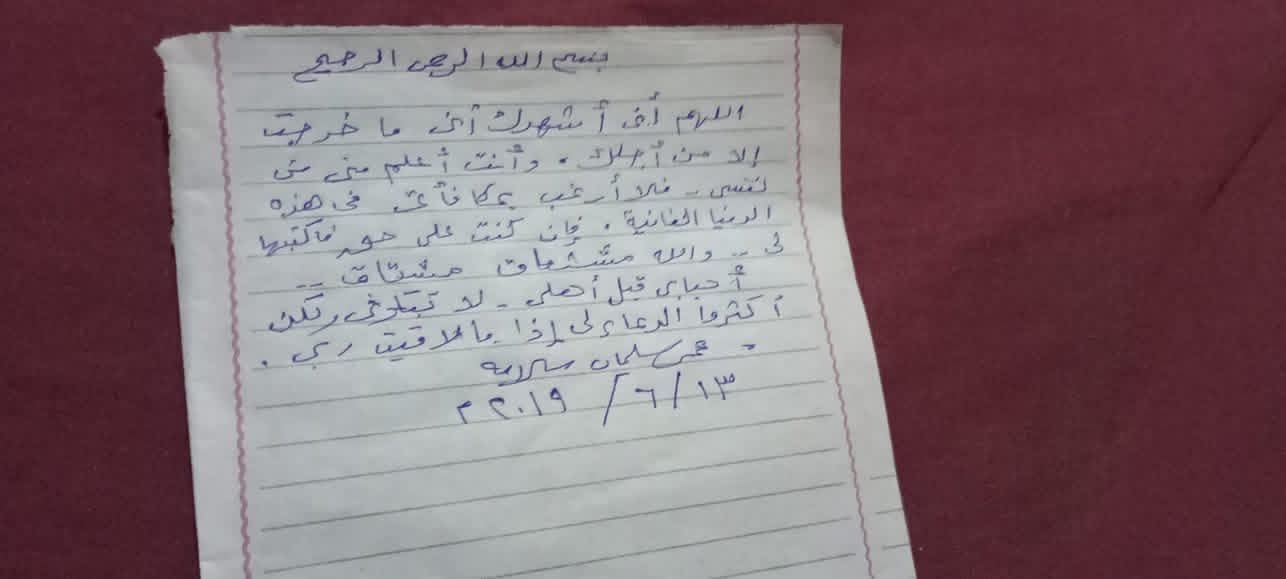 بسم الله الرحمن الرحيم
اللهم أنى أشهدك أنى ما خرجت
إلا من أجلك. وأنت أعلم منى منى
لنفسى.. فلا أرغب بمكافأتى فى هذه
الدنيا الفانية. فإن كنت على حق فاكتبها
لى .. والله مشتاق مشتاق ..
أحبابى قبل أهلى .. لا تبكونى ولكن
أكثروا الدعاء لى إذا ما لاقيت ربى .
. عمر سلمان سلامه
١٣/ ٦/ ٢٠١٩ م